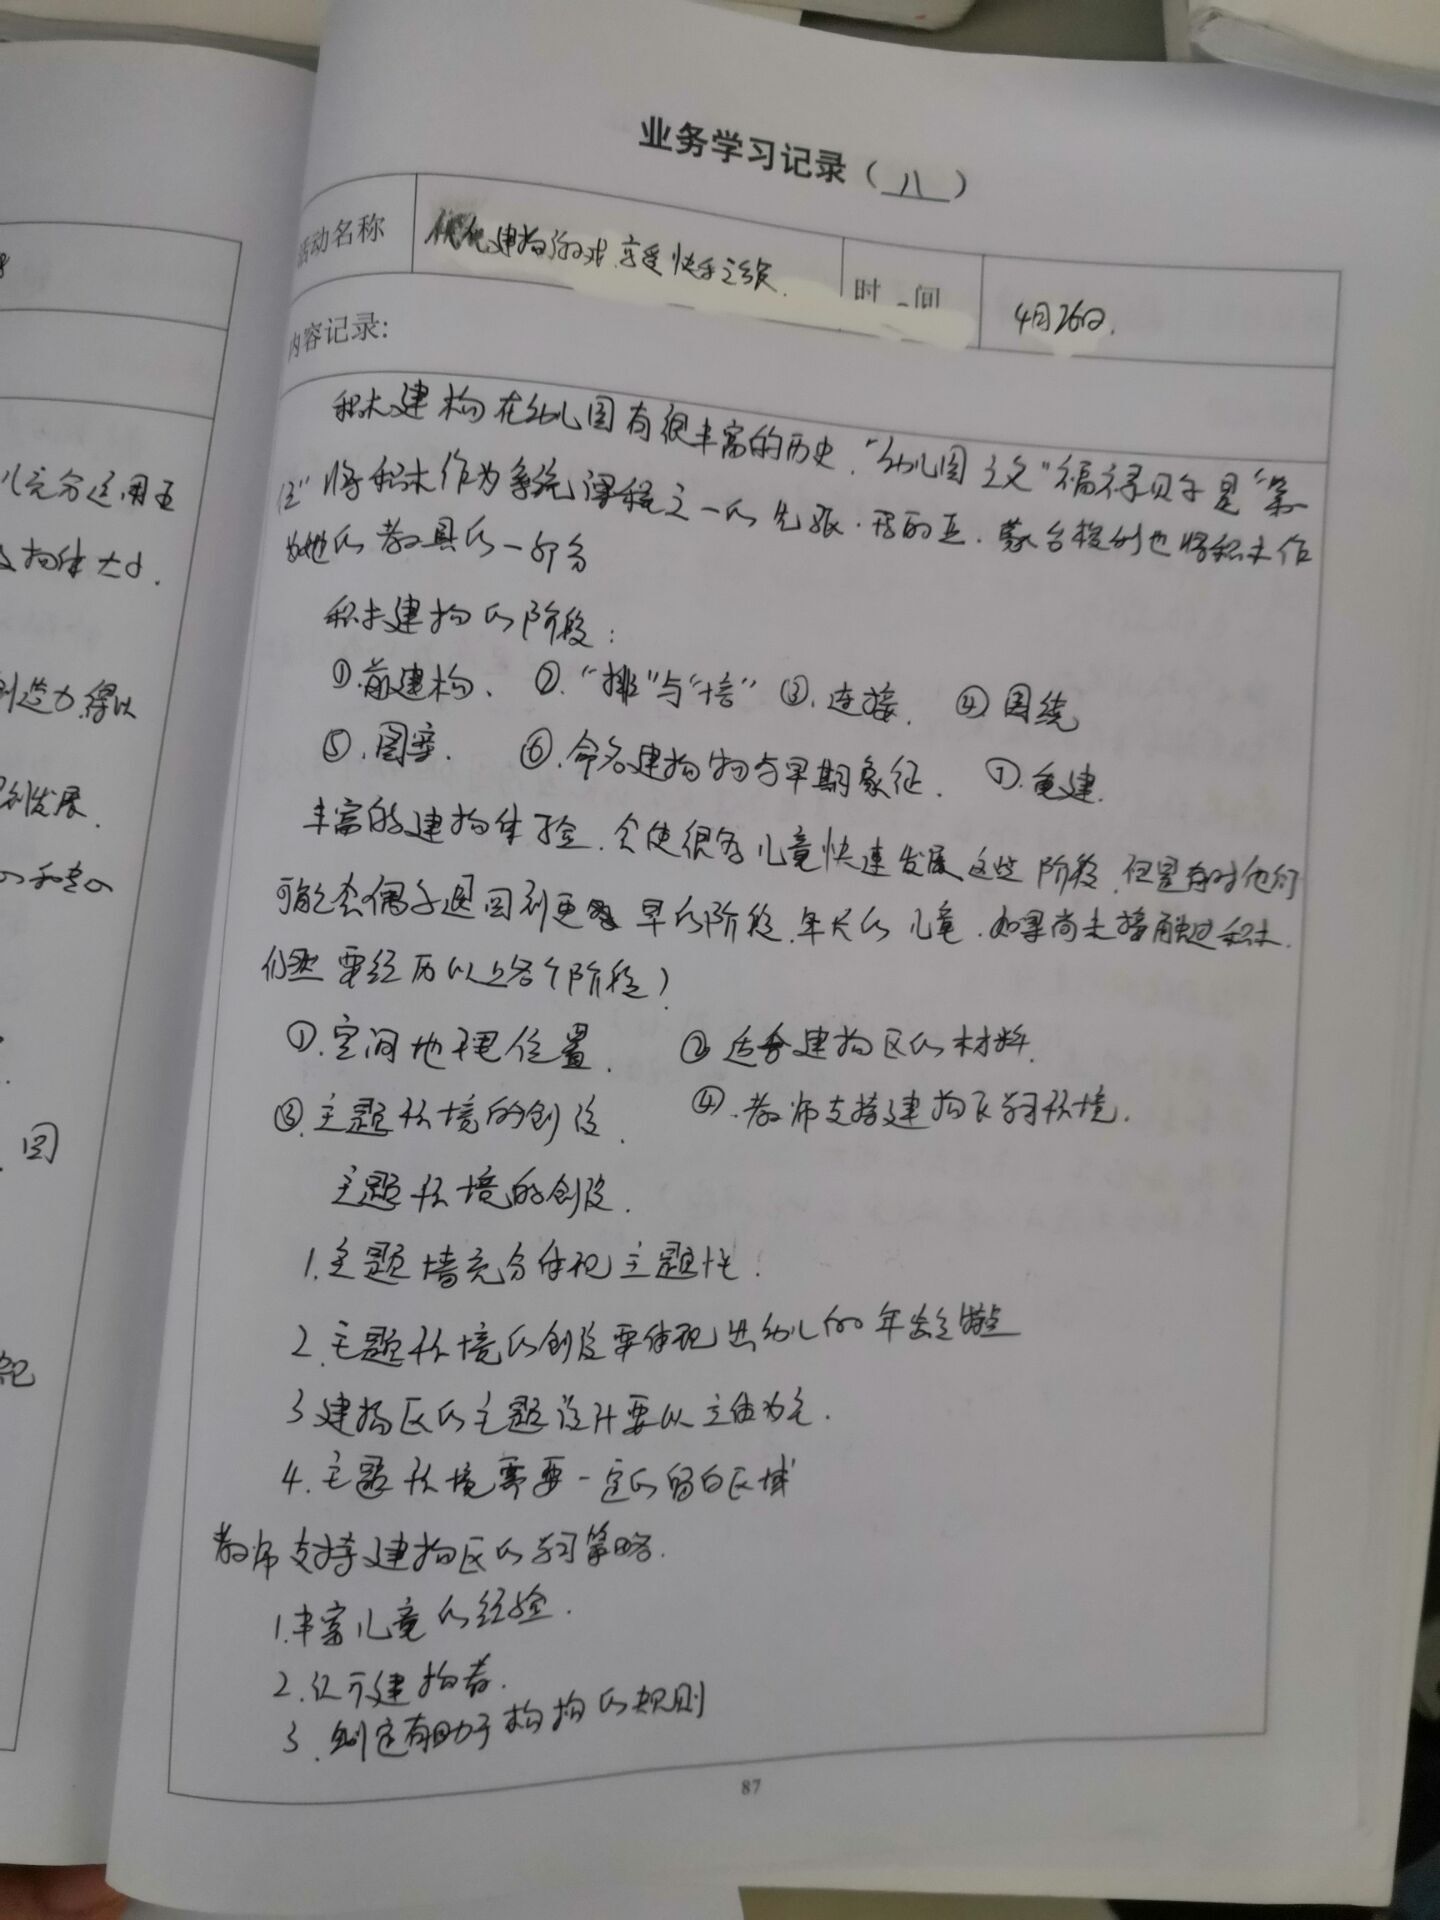 业务学习记录（八）
活动名称 优化建构游戏.享受快乐之旅. 时间 4月26日.
内容记录:
积木建构在幼儿园有很丰富的历史.“幼儿园之父”福禄贝尔是“第一
位”将积木作为系统课程之一的先驱.蒙台梭利也将积木作
为她的教具的一部分
积木建构的阶段:
①.前建构. ②.“排”与“搭” ③.连接. ④围绕
⑤.图案. ⑥.命名建构物与早期象征. ⑦.重建.
丰富的建构体验.会使很多儿童快速发展这些阶段.但是有时他们
可能会偶尔退回到更早的阶段.年长的儿童.如果尚未接触过积木.
们然要经历以上各个阶段)
①.空间地理位置. ②适合建构区的材料.
③.主题环境的创设. ④.教师支持建构区学习环境.
主题环境的创设.
1.主题墙充分体现主题性.
2.主题环境的创设要体现出幼儿的年龄特点
3建构区的主题设计要以立体为主.
4.主题环境需要一定的留白区域
教师支持建构区的学习策略.
1.丰富儿童的经验.
2.认可建构者.
3.制定有助于构构的规则
87
儿充分运用五
物体大小.
创造力得以
到发展.
和
图